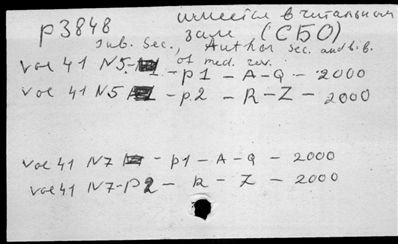 имеется в читальном
р3848 зале (СБО)
sub. sec., Author sec. and bib.
of med. rev.
vol 41 N5- p1 - A-Q - 2000
vol 41 N5 - p.2 - R-Z - 2000
vol 41 N7 - p1 - A-Q - 2000
vol 41 N7-p2 - R - Z - 2000